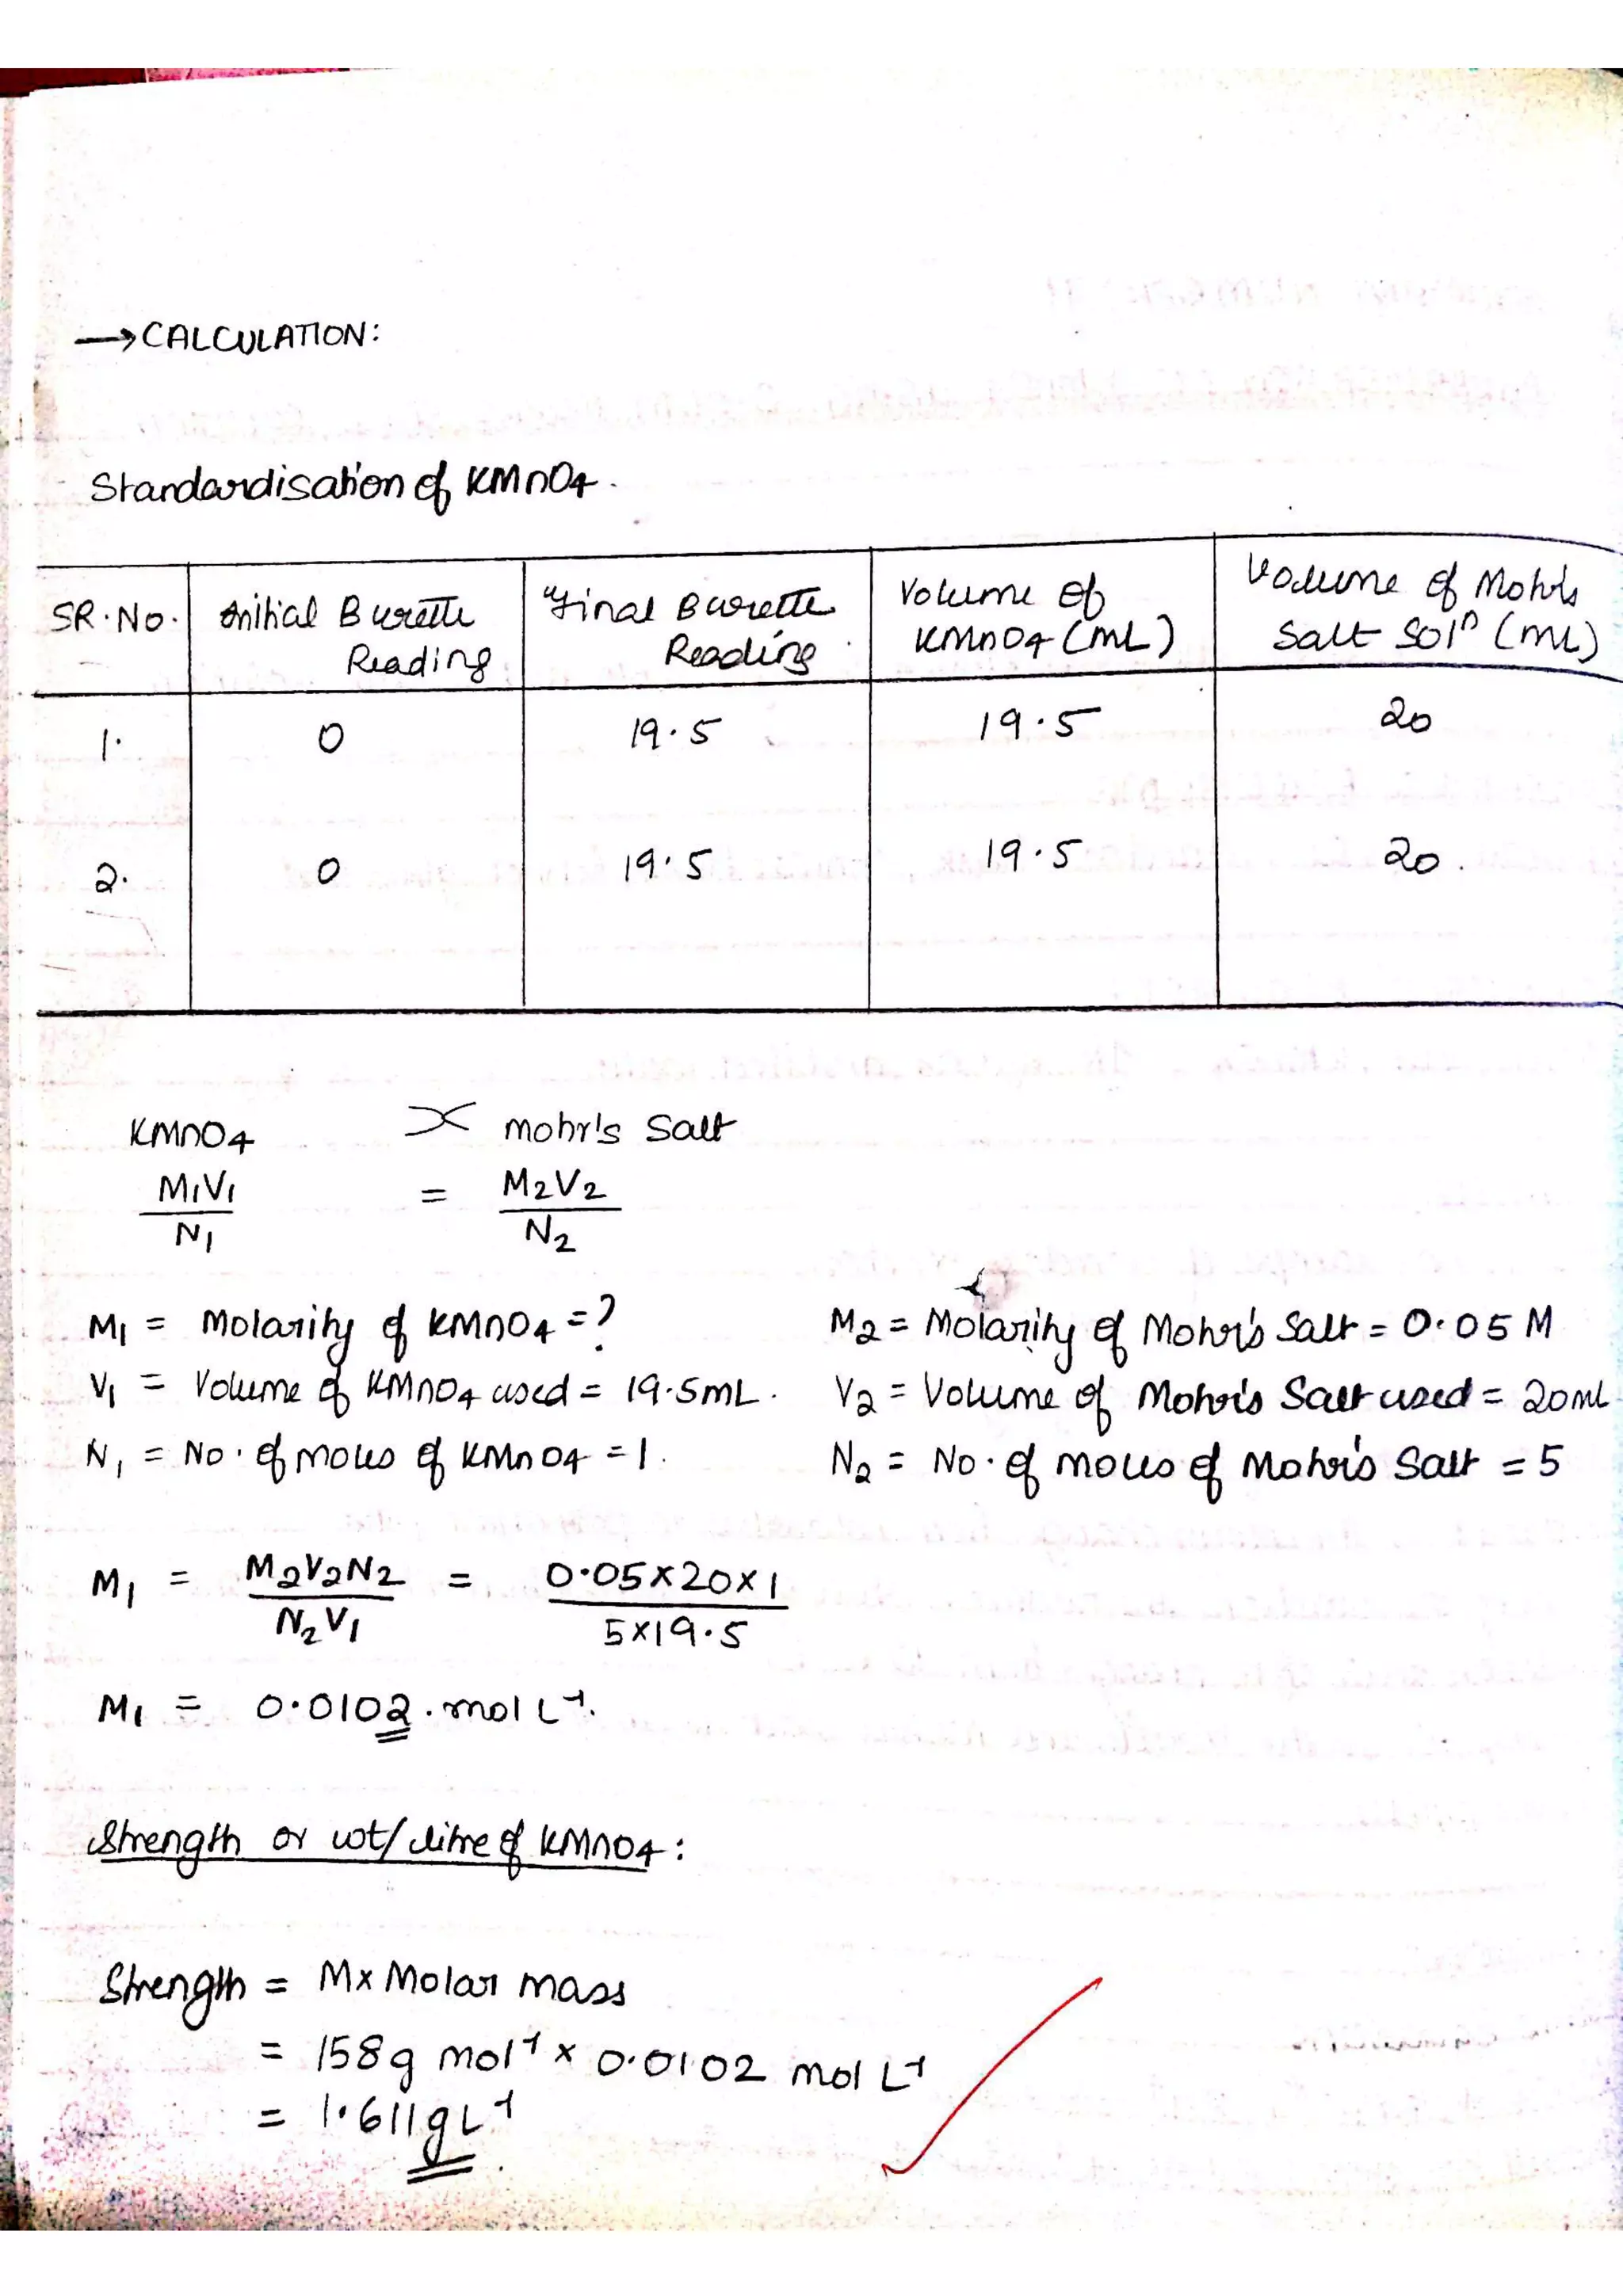 → CALCULATION:
Standardisation of KMnO4.
SR.No. Initial Burette Reading Final Burette Reading Volume of KMnO4 (mL) Volume of Mohr's Salt Solⁿ (mL)
1. 0 19.5 19.5 20
2. 0 19.5 19.5 20.
KMnO4 mohr's Salt
M1V1/N1 = M2V2/N2
M1 = Molarity of KMnO4 = ? M2 = Molarity of Mohr's Salt = 0.05 M
V1 = Volume of KMnO4 used = 19.5mL. V2 = Volume of Mohr's Salt used = 20mL
N1 = No. of moles of KMnO4 = 1. N2 = No. of moles of Mohr's Salt = 5
M1 = M2V2N2/N2V1 = 0.05×20×1/5×19.5
M1 = 0.0102. mol L⁻¹.
Strength or wt/litre of KMnO4:
Strength = M× Molar mass
= 158g mol⁻¹ × 0.0102 mol L⁻¹
= 1.611gL⁻¹.